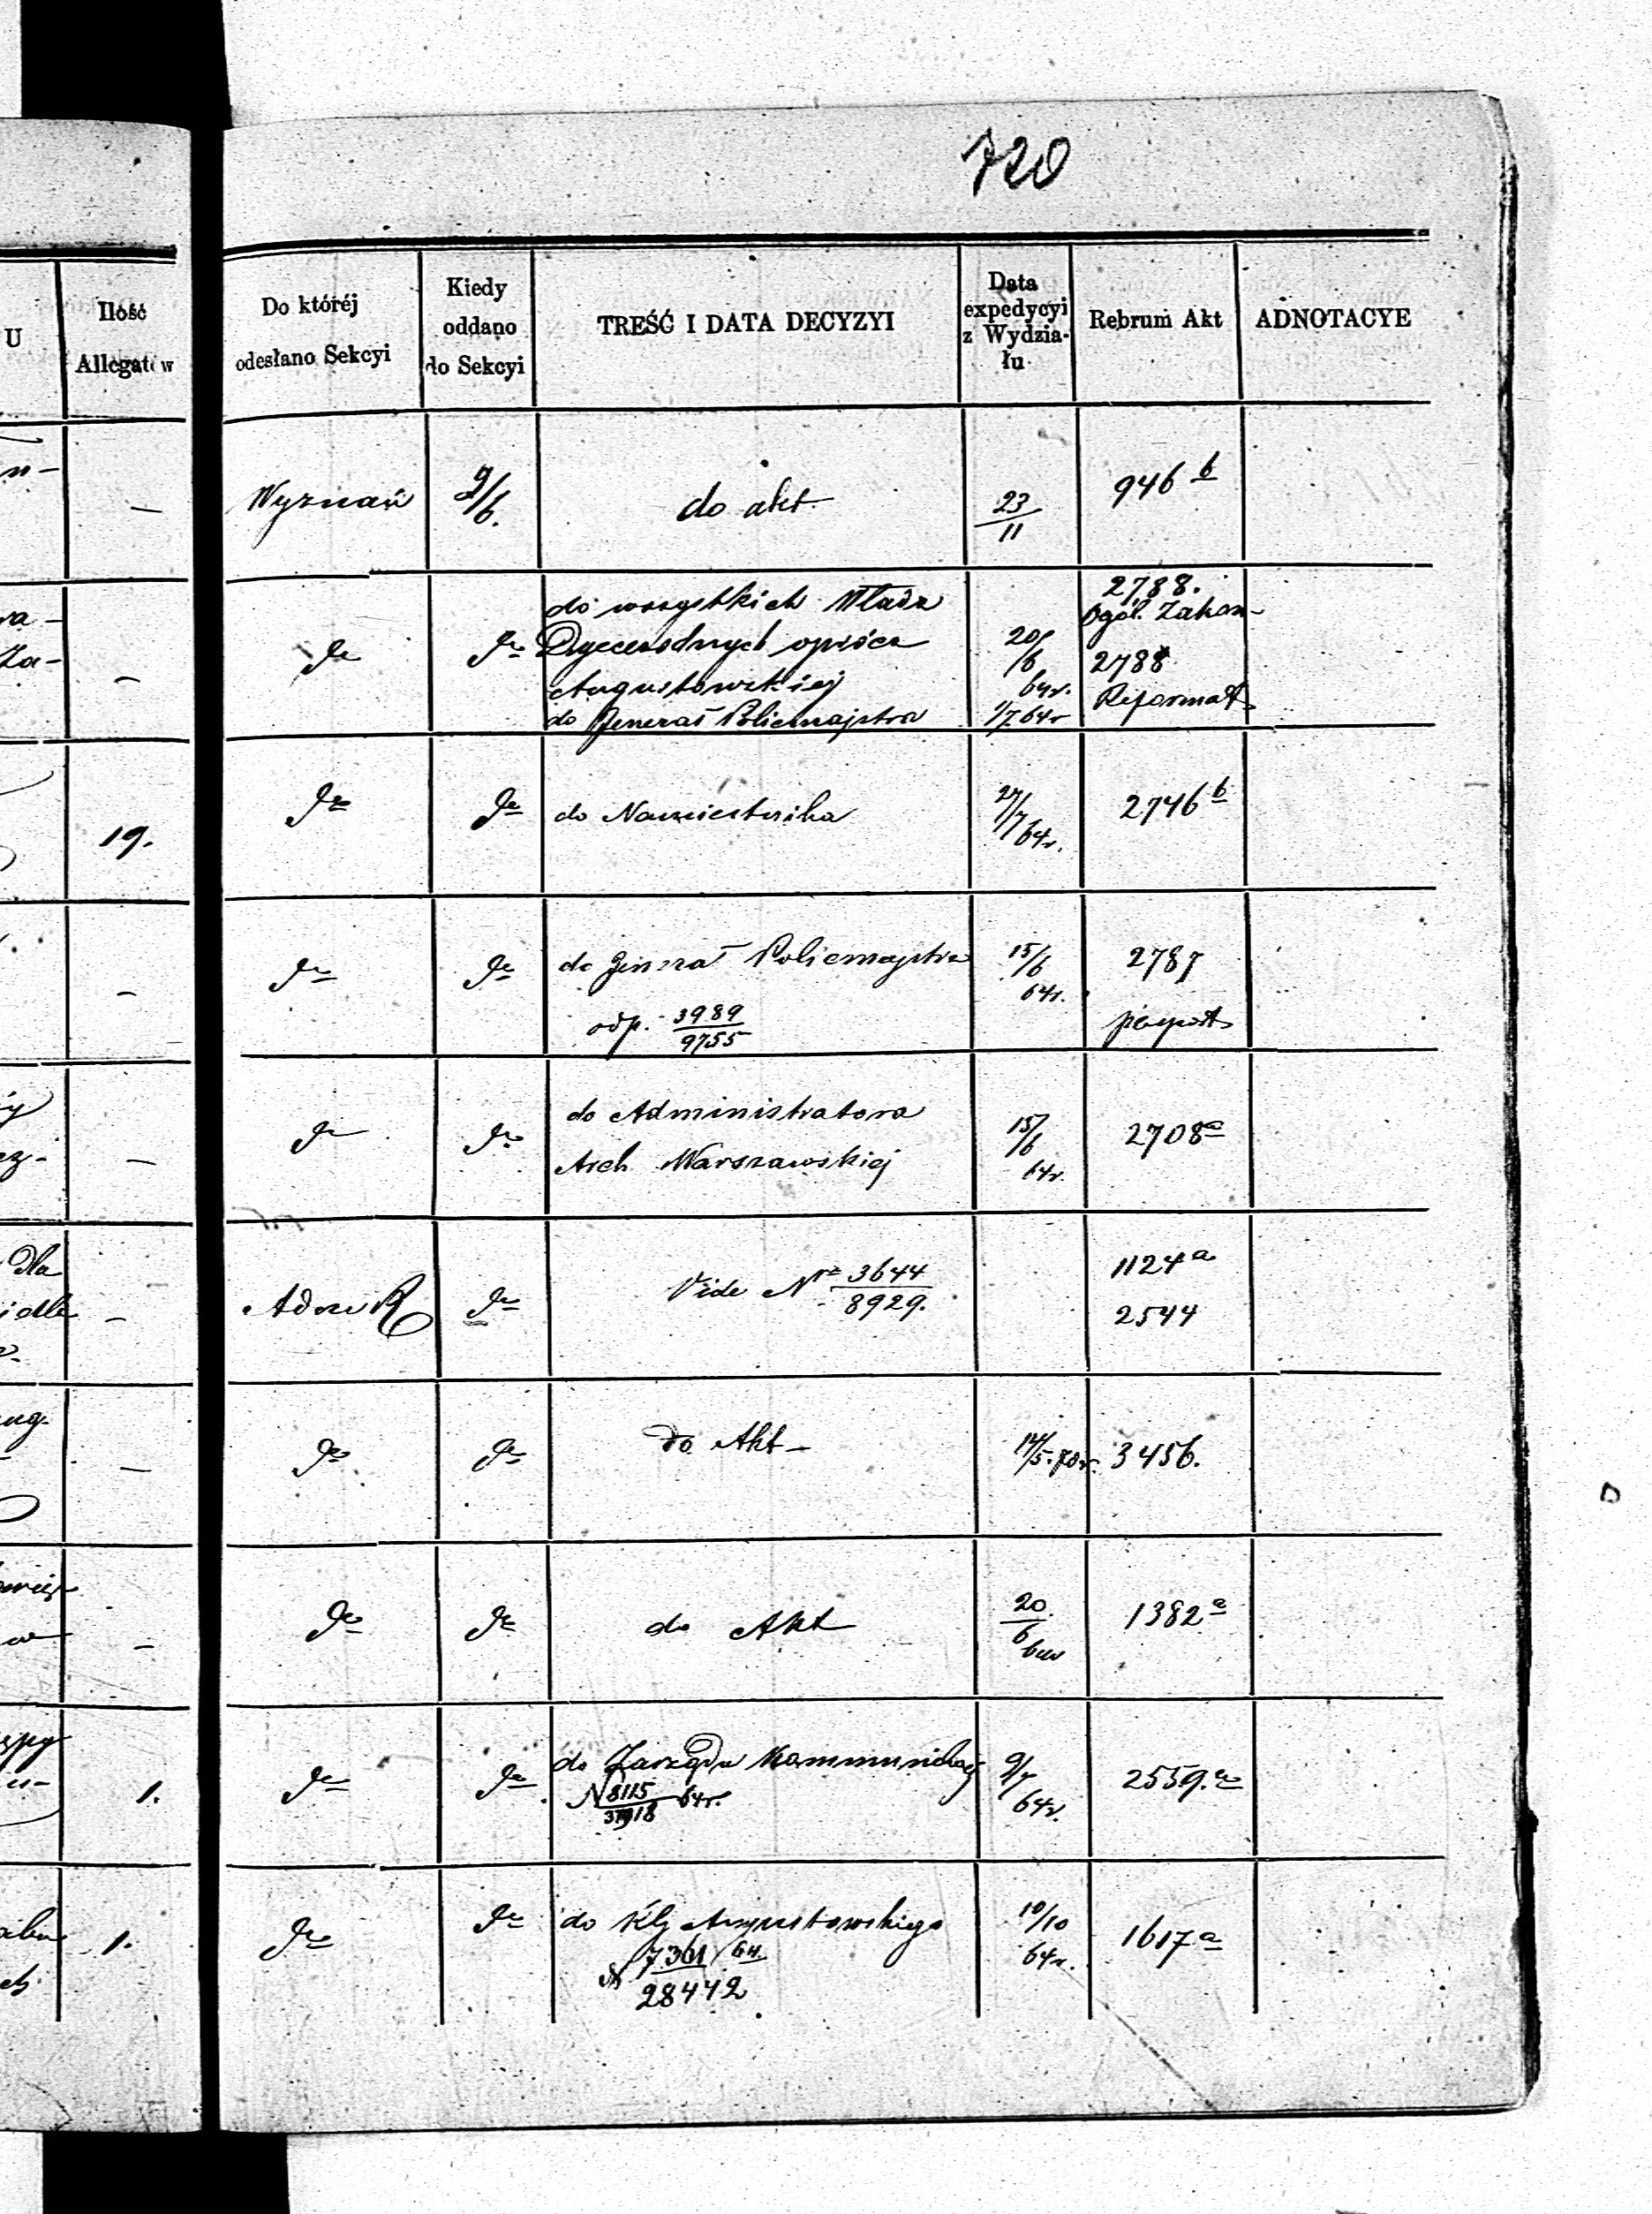 720
U
Ilość
Allegatów
Do któréj
odesłano Sekcyi
Kiedy
oddano
do Sekcyi
TREŚĆ I DATA DECYZYI
Data
expedycyi
z Wydzia-
łu
Rebrum Akt
ADNOTACYE
—
Wyznań
9/6.
do akt
23/11
946 b
—
do
do
do wszystkich Władz
Dyecezalnych oprócz
Augustowskiej
do Jenerał Policmajstra
20/6
64r.
1/7 64r
2788.
Ogól. Zakon-
2788
Reformat
19.
do
do
do Namiestnika
27/7 64r.
2746 b
—
do
do
do Jenerał Policmajstra
odp. 3989/9755
15/6
64r.
2787
—
do
do
do Administratora
Arch Warszawskiej
15/6
64r.
2708 a
dla
—
Adm R
do
Vide No 3644/8929.
1124 a
2544
—
do
do
do Akt
14/5. 70r.
3456.
w
—
do
do
do Akt
20/6
1382 a
1.
do
do
do Zarządu Kommunikacyj
N 8115/31918 64r.
9/7
64r.
2559. a
1.
do
do
do Augustowskiego
N 7361/28442 64
10/10
64r.
1617 a